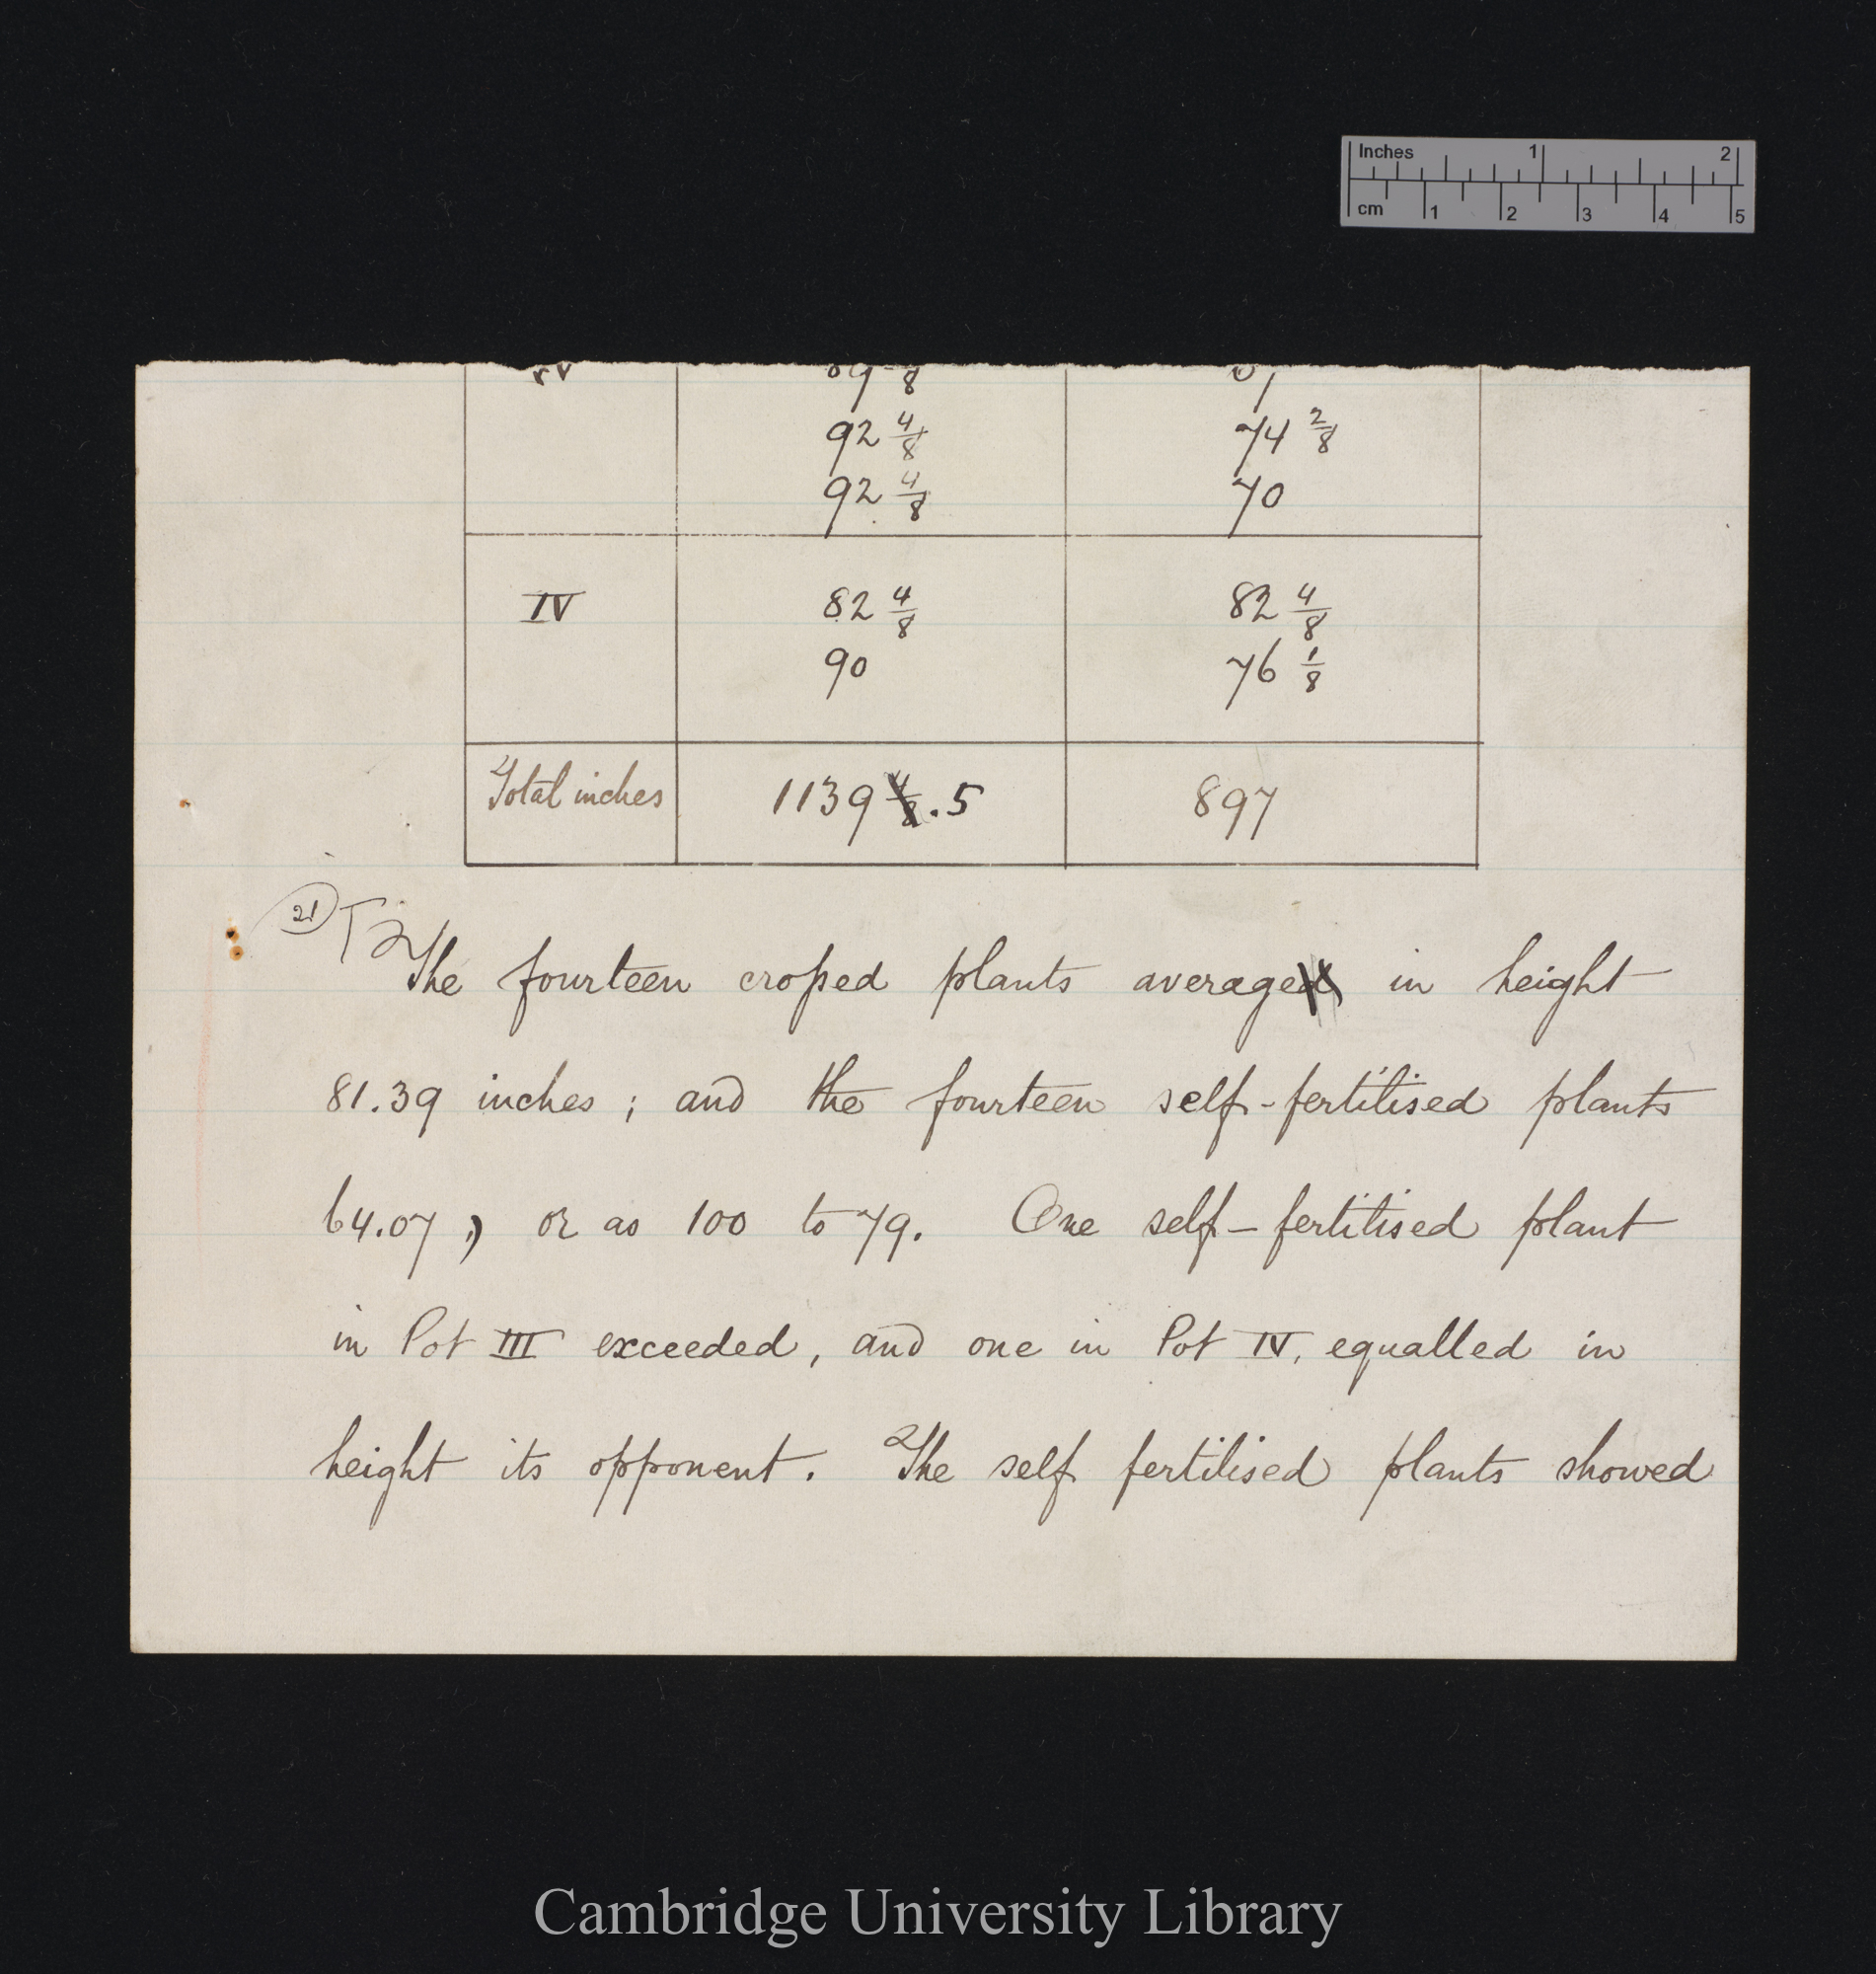 Inches 1 2
cm 1 2 3 4 5
92 4/8 74 2/8
92 4/8 70
IV 82 4/8 82 4/8
90 76 1/8
Total inches 1139 4/8 .5 897
21
The fourteen crossed plants averaged in height
81.39 inches; and the fourteen self-fertilised plants
64.07, or as 100 to 79. One self-fertilised plant
in Pot III exceeded, and one in Pot IV, equalled in
height its opponent. The self fertilised plants showed
Cambridge University Library